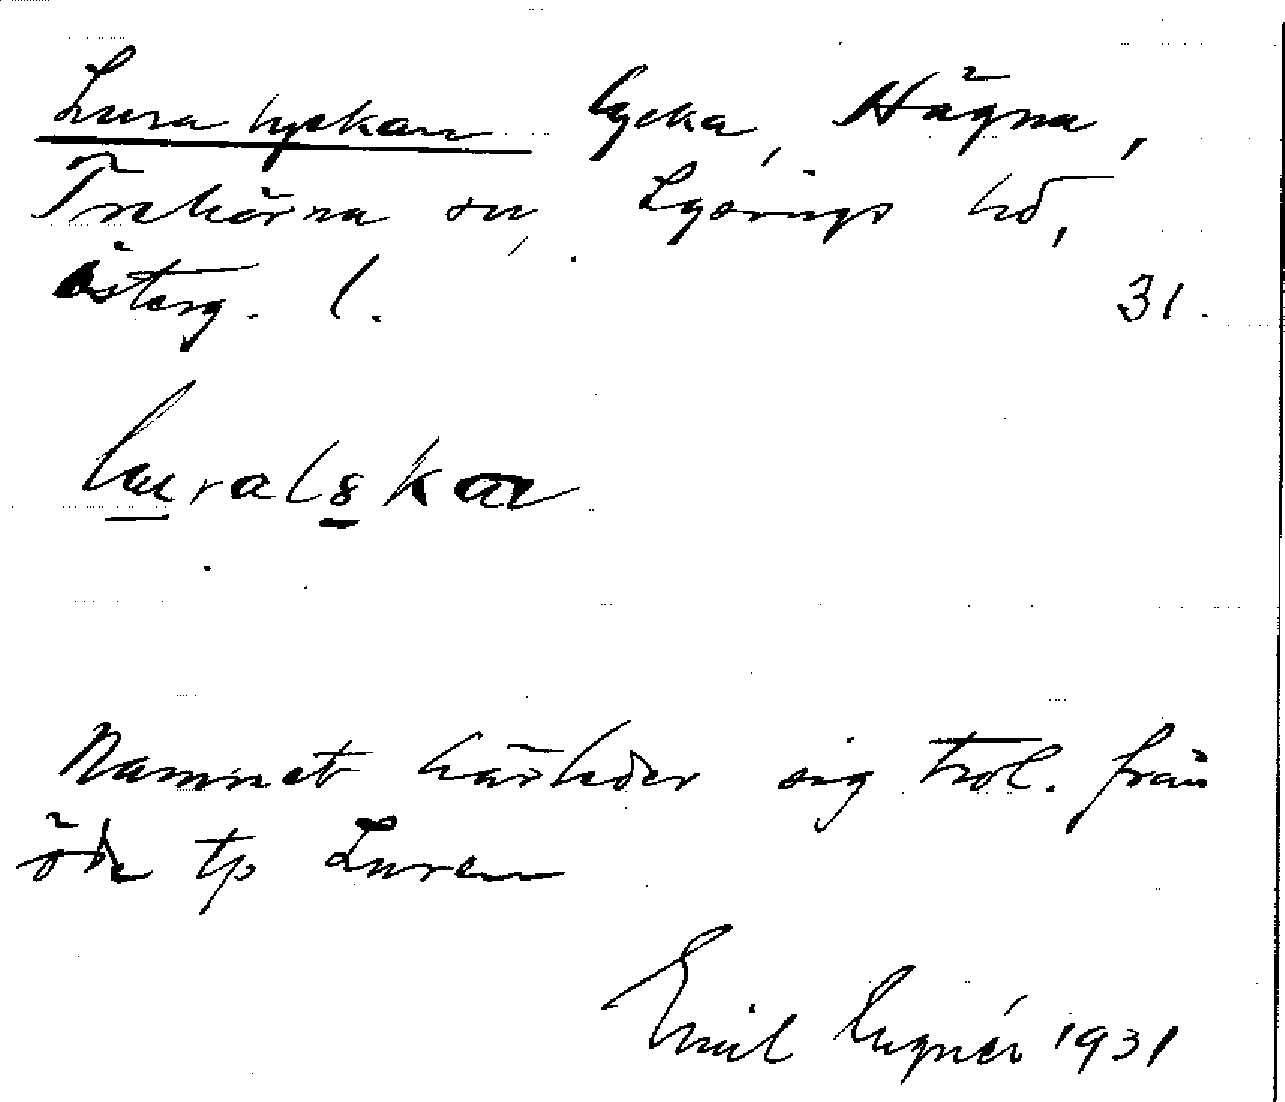 Luralyckan lycka, Hägna,
Trehörna sn, Lysings hd,
Österg. l. 31.
luralykan
Namnet härleder sig trol. från
öde tp Luren
Emil Lugnér 1931